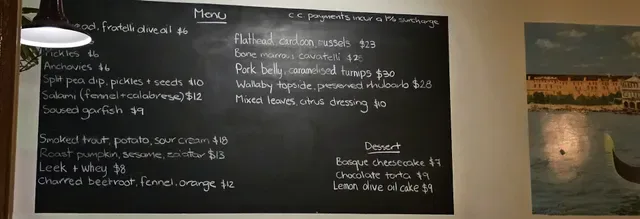 Menu
c.c. payments incur a 1% surcharge
fratelli olive oil $6
Pickles $6
Anchovies $6
Split pea dip, pickles + seeds $10
Salami (fennel + calabrese) $12
Soused garfish $9
Smoked trout, potato, sour cream $18
Roast pumpkin, sesame, za'atar $13
Leek + whey $8
Charred beetroot, fennel, orange $12
flathead, cardoon, mussels $23
Bone marrow, cavatelli
Pork belly, caramelised turnips $30
Wallaby topside, preserved rhubarb $28
Mixed leaves, citrus dressing $10
Dessert
Basque cheesecake $7
Chocolate torta $9
Lemon olive oil cake $9